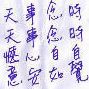 時時自覺
念念自如
事事心安
天天愜意